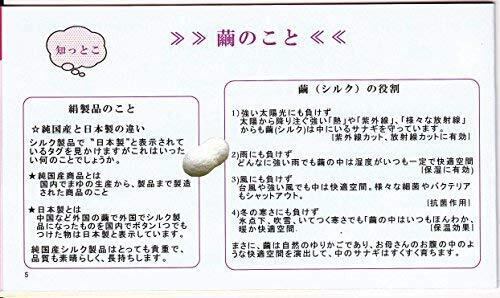 知っとこ
≫≫ 繭のこと ≪≪
絹製品のこと
☆純国産と日本製の違い
シルク製品で "日本製"と表示されて
いるタグを見かけますがこれはいった
い何のことでしょうか。
★純国産商品とは
国内でまゆの生産から、製品まで製造
された商品のこと
★日本製とは
中国など外国の繭で外国でシルク製
品になったものを国内でボタン1つでも
つけた物は日本製と表示しています。
純国産シルク製品はとっても貴重で、
品質も素晴らしく、長持ちします。
5
繭(シルク)の役割
1)強い太陽光にも負けず
太陽から降り注ぐ強い「熱」や「紫外線」、「様々な放射線」
からも繭(シルク)は中にいるサナギを守っています。
[紫外線カット、放射線カットに有効]
2)雨にも負けず
どんなに強い雨でも繭の中は湿度がいつも一定で快適空間
[保湿に有効]
3)風にも負けず
台風や強い風でも中は快適空間。様々な細菌やバクテリア
もシャットアウト。
[抗菌作用]
4)冬の寒さにも負けず
氷点下、吹雪、いてつく寒さでも「繭の中はいつもほんわか、
暖か快適空間
[保温効果]
まさに、繭は自然のゆりかごであり、お母さんのお腹の中の
ような快適空間を演出して、中のサナギはすくすく育ちます。